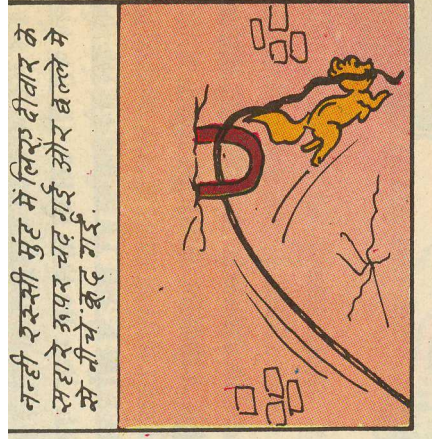 नन्ही रस्सी मुंह में लिए दीवार के
सहारे ऊपर चढ़ गई और छल्ले में
से नीचे कूद गई.